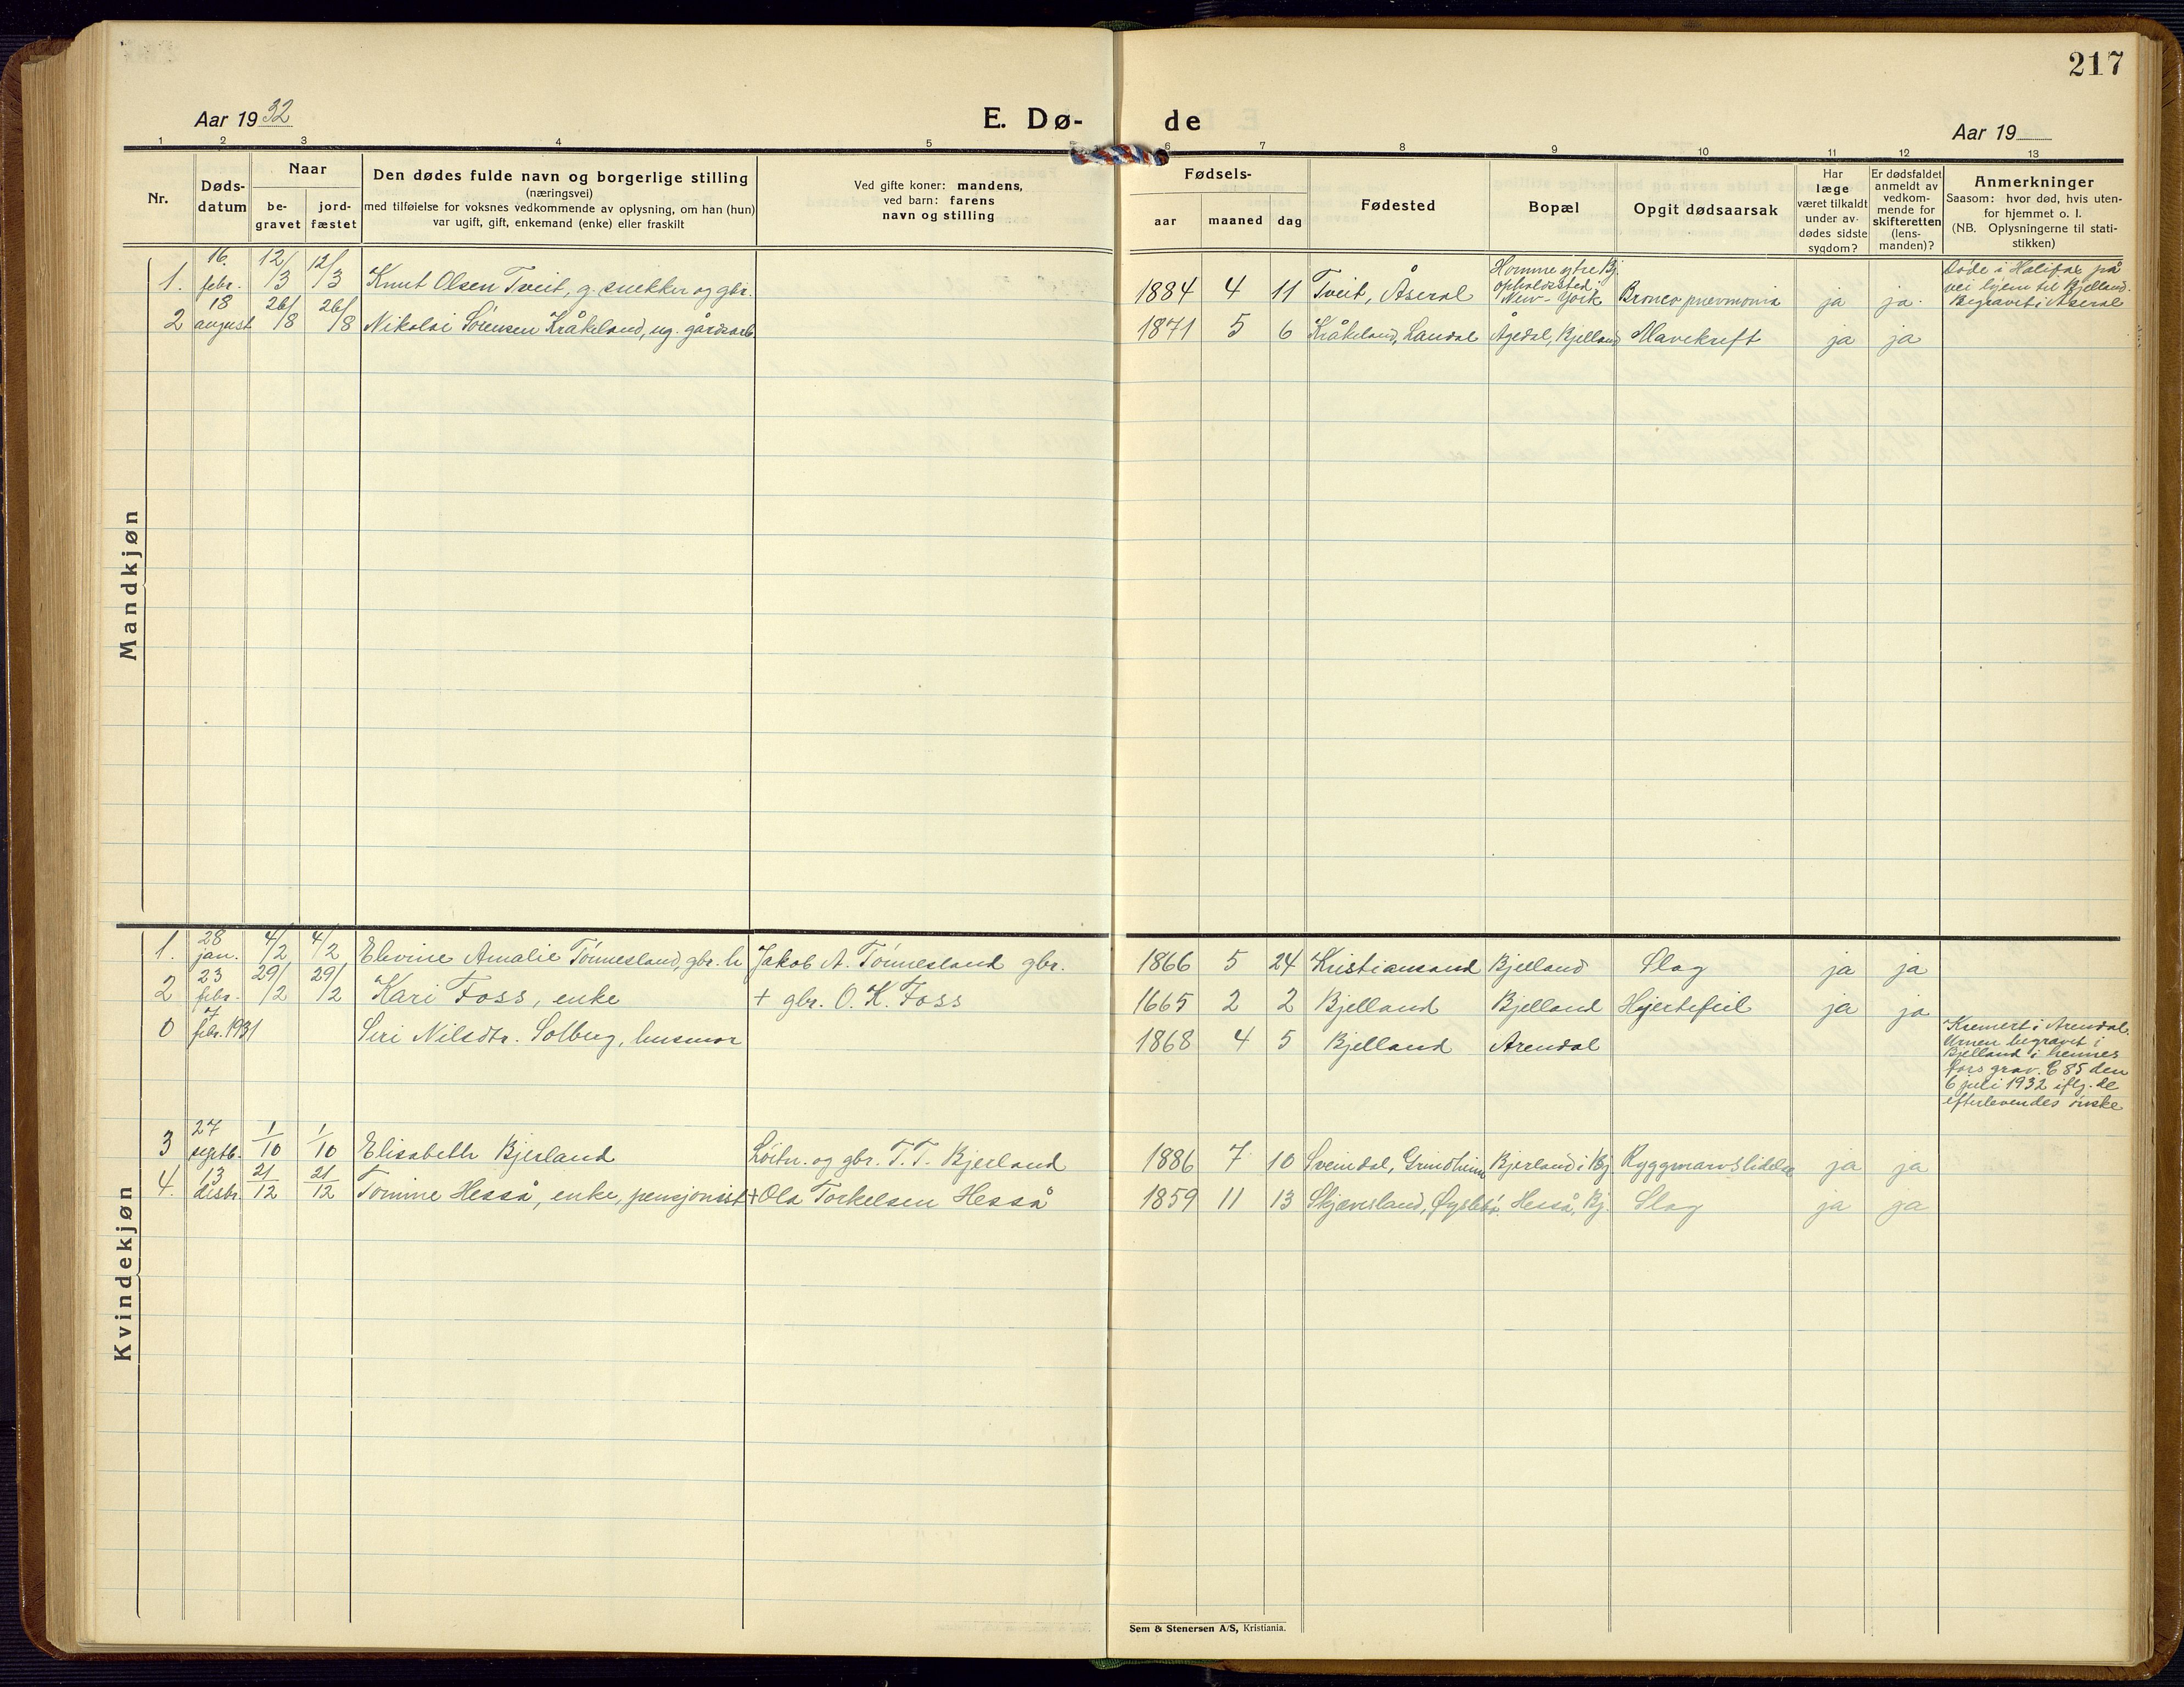 217
Aar 1932
E. Dø-
de
Aar 19
1 2 3 4 5 6 7 8 9 10 11 12 13
Nr.
Døds-
datum
Naar
be-
gravet
jord-
fæstet
Den dødes fulde navn og borgerlige stilling
(næringsvei)
med tilføielse for voksnes vedkommende av oplysning, om han (hun)
var ugift, gift, enkemand (enke) eller fraskilt
Ved gifte koner: mandens,
ved barn: farens
navn og stilling
Fødsels-
aar maaned dag
Fødested
Bopæl
Opgit dødsaarsak
Har
læge
været tilkaldt
under av-
dødes sidste
sygdom?
Er dødsfaldet
anmeldt av
vedkom-
mende for
skifteretten
(lens-
manden)?
Anmerkninger
Saasom: hvor død, hvis uten-
for hjemmet o. l.
(NB. Oplysningerne til stati-
stikken)
Mandkjøn
1. 16. febr. 12/3 12/3 Knut Olsen Tveit, g. snekker og gbr. 1884 4 11 Tveit, Åseral
Homme ytre Bj.
opholdssted:
New-York
Bronco pnevmonia ja ja.
Døde i Halifax på
vei hjem til Bjelland.
Begravet i Åseral
2 18 august 26/8 26/8 Nikolai Sørensen Kråkeland, ug. gårdsarb. 1871 5 6 Kråkeland, Laudal Ågedal, Bjelland Mavekreft ja ja
Kvindekjøn
1. 28 jan. 4/2 4/2 Elevine Amalie Tønnesland, gbr. h Jakob A. Tønnesland gbr. 1866 5 24 Kristiansand Bjelland Slag ja ja
2 23 febr. 29/2 29/2 Kari Foss, enke + gbr. O. K. Foss 1665 2 2 Bjelland Bjelland Hjertefeil ja ja
0 7 febr. 1931 Siri Nilsdtr. Solberg, husmor 1868 4 5 Bjelland Arendal
Kremert i Arendal.
Urnen begravet i
Bjelland i hennes
fars grav. C 85 den
6 juli 1932 iflg. de
efterlevendes ønske
3 27 septb. 1/10 1/10 Elisabeth Bjerland Løitn. og gbr. T. T. Bjerland 1886 7 10 Sveindal, Grindheim Bjerland i Bj Ryggmarvslidelse ja ja
4. 13 desbr. 21/12 21/12 Tomine Hesså, enke, pensjonist + Ola Torkelsen Hesså 1859 11 13 Skjævesland, Øyslebø. Hesså, Bj. Slag ja ja
Sem & Stenersen A/S, Kristiania.